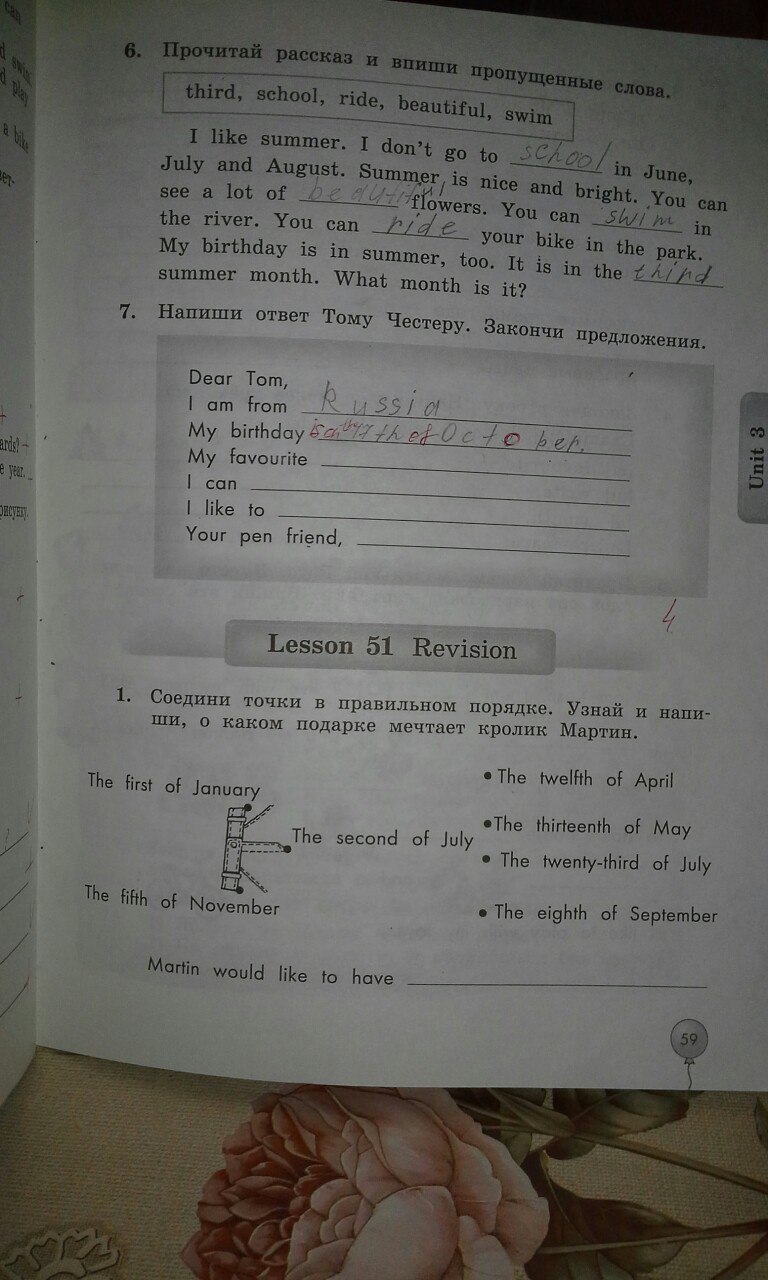 can
d swim
d play
a bike
6. Прочитай рассказ и впиши пропущенные слова.
third, school, ride, beautiful, swim
I like summer. I don't go to school in June,
July and August. Summer is nice and bright. You can
see a lot of beautiful flowers. You can swim in
the river. You can ride your bike in the park.
My birthday is in summer, too. It is in the third
summer month. What month is it?
7. Напиши ответ Тому Честеру. Закончи предложения.
Dear Tom,
I am from Russia
My birthday is on the 7th of October.
My favourite
I can
I like to
Your pen friend,
ards?
e year.
рисунку.
Unit 3
4
Lesson 51 Revision
1. Соедини точки в правильном порядке. Узнай и напи-
ши, о каком подарке мечтает кролик Мартин.
The first of January
The second of July
The fifth of November
• The twelfth of April
• The thirteenth of May
• The twenty-third of July
• The eighth of September
Martin would like to have
59